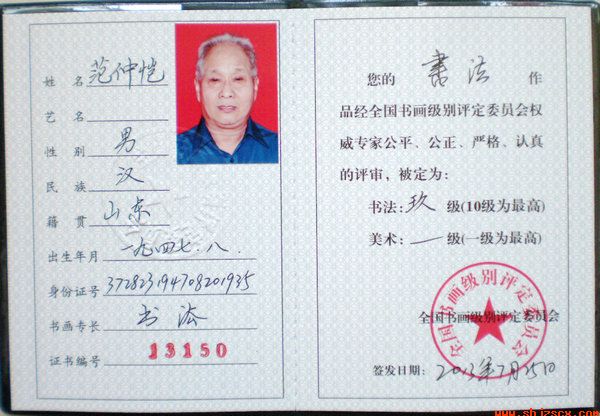 姓 名 范仲恺
艺 名
性 别 男
民 族 汉
籍 贯 山东
出生年月 一九四七.八.
身份证号 372823194708201935
书画专长 书法
证书编号 13150
您的 书法 作
品经全国书画级别评定委员会权
威专家公平、公正、严格、认真
的评审，被定为：
书法：玖 级(10级为最高)
美术：一 级(一级为最高)
全国书画级别评定委员会
全国书画级别评定委员会
签发日期： 2013年7月25日
www.shjzscx.com